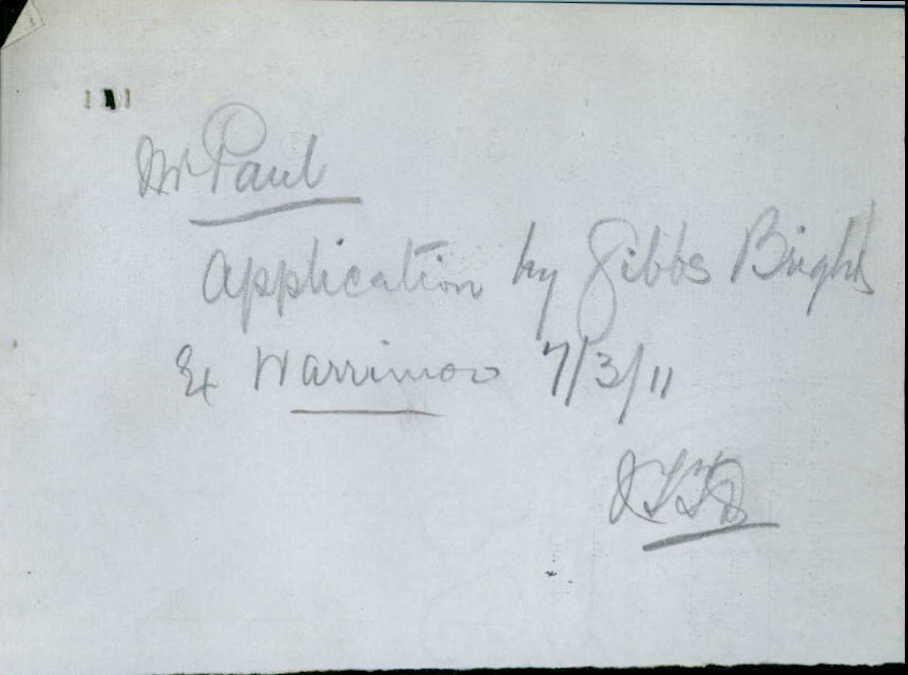 Mr Paul
Application by Gibbs Bright
Ex Warrimoo 7/3/11